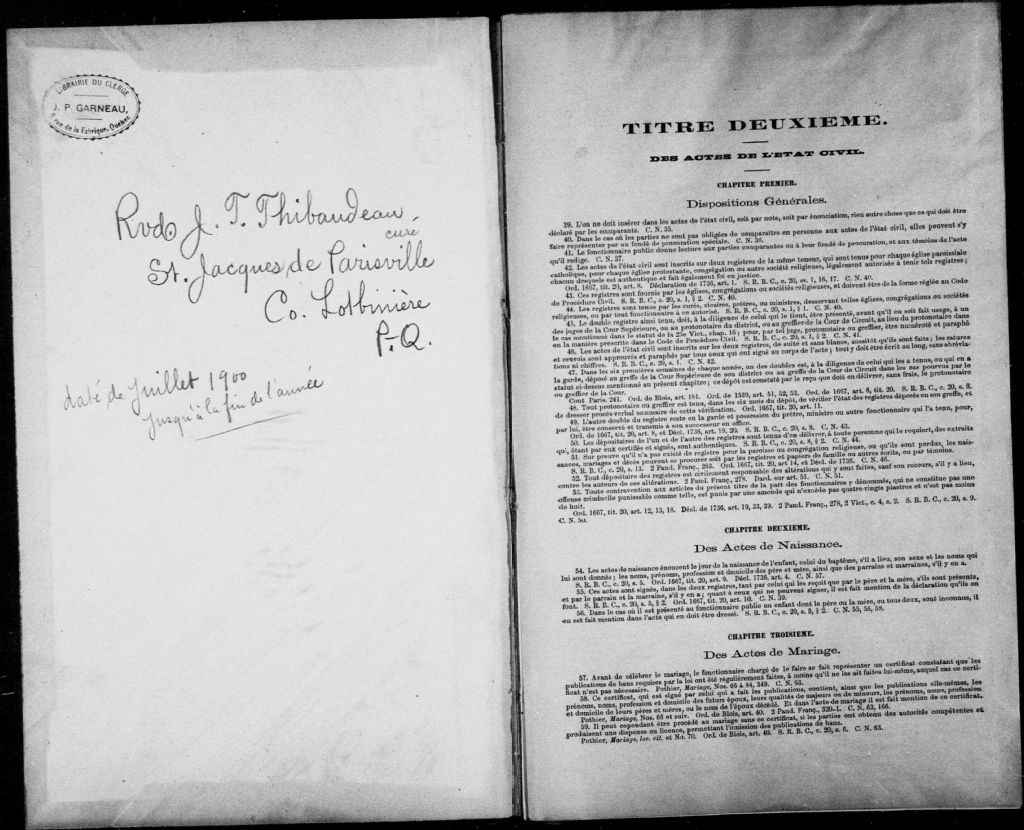 LIBRAIRIE DU CLERGE
J. P. GARNEAU,
6 rue de la Fabrique, Quebec
Rvd J. T. Thibaudeau,
curé
St. Jacques de Parisville
Co. Lotbinière
P.Q.
daté de Juillet 1900
jusqu'à la fin de l'année
TITRE DEUXIEME.
DES ACTES DE L'ETAT CIVIL.
CHAPITRE PREMIER.
Dispositions Générales.
39. L'on ne doit insérer dans les actes de l'état civil, soit par note, soit par énonciation, rien autre chose que ce qui doit être
déclaré par les comparants. C. N. 35.
40. Dans le cas où les parties ne sont pas obligées de comparaître en personne aux actes de l'état civil, elles peuvent s'y
faire représenter par un fondé de procuration spéciale. C. N. 36.
41. Le fonctionnaire public donne lecture aux parties comparantes ou à leur fondé de procuration, et aux témoins de l'acte
qu'il redige. C. N. 37.
42. Les actes de l'état civil sont inscrits sur deux registres de la même teneur, qui sont tenus pour chaque église paroissiale
catholique, pour chaque église protestante, congrégation ou autre société religieuse, légalement autorisée à tenir tels registres ;
chacun desquels est authentique et fait également foi en justice.
Ord. 1667, tit. 20, art. 8. Déclaration de 1736, art. 1. S. R. B. C., c. 20, ss. 1, 16, 17. C. N. 40.
43. Ces registres sont fournis par les églises, congrégations ou sociétés religieuses, et doivent être de la forme réglée au Code
de Procédure Civil. S. R. B. C., c. 20, s. 1, § 2. C. N. 40.
44. Les registres sont tenus par les curés, vicaires, prêtres, ou ministres, desservant telles églises, congrégations ou sociétés
religieuses, ou par tout fonctionnaire à ce autorisé. S. R. B. C., c. 20, s. 1, § 1. C. N. 40.
45. Le double registre ainsi tenu, doit, à la diligence de celui qui le tient, être présenté, avant qu'il en soit fait usage, à un
des juges de la Cour Supérieure, ou au protonotaire du district, ou au greffier de la Cour de Circuit, au lieu du protonotaire dans
le cas mentionné dans le statut de la 25e Vict., chap. 16 ; pour, par tel juge, protonotaire ou greffier, être numéroté et paraphé
en la manière prescrite dans le Code de Procédure Civil. S. R. B. C., c. 20, s. 1, § 2. C. N. 41.
46. Les actes de l'état civil sont inscrits sur les deux registres, de suite et sans blancs, aussitôt qu'ils sont faits ; les ratures
et renvois sont approuvés et paraphés par tous ceux qui ont signé au corps de l'acte ; tout y doit être écrit au long, sans abrévia-
tions ni chiffres. S. R. B. C., c. 20, s. 1. C. N. 42.
47. Dans les six premières semaines de chaque année, un des doubles est, à la diligence de celui qui les a tenus, ou qui en a
la garde, déposé au greffe de la Cour Supérieure de son district ou au greffe de la Cour de Circuit dans les cas pourvus par le
statut ci-dessus mentionné au présent chapitre ; ce dépôt est constaté par le reçu que doit en délivrer, sans frais, le protonotaire
ou greffier de la Cour.
Cout Paris. 241. Ord. de Blois, art. 181. Ord. de 1539, art. 51, 52, 53. Ord. de 1667, art. 8, tit. 20. S. R. B. C., c. 20, s. 8.
48. Tout protonotaire ou greffier est tenu, dans les six mois du dépôt, de vérifier l'état des registres déposés en son greffe, et
de dresser procès-verbal sommaire de cette vérification. Ord. 1667, tit. 20, art. 11.
49. L'autre double du registre reste en la garde et possession du prêtre, ministre ou autre fonctionnaire qui l'a tenu, pour,
par lui, être conservé et transmis à son successeur en office.
Ord. de 1667, tit. 20, art. 8, et Décl. 1736, art. 19, 20. S. R. B. C., c. 20, s. 8. C. N. 43.
50. Les dépositaires de l'un et de l'autre des registres sont tenus d'en délivrer, à toute personne qui le requiert, des extraits
qui, étant par eux certifiés et signés, sont authentiques. S. R. B. C., c. 20, s. 8, § 2. C. N. 44.
51. Sur preuve qu'il n'a pas existé de registre pour la paroisse ou congrégation religieuse, ou qu'ils sont perdus, les nais-
sances, mariages et décès peuvent se procurer soit par les registres et papiers de famille ou autres écrits, ou par témoins.
S. R. B. C., c. 20, s. 13. 2 Pand. Franç. 263. Ord. 1667, tit. 20, art 14, et Décl. de 1736. C. N. 46.
52. Tout dépositaire des registres est civilement responsable des altérations qui y sont faites, sauf son recours, s'il y a lieu,
contre les auteurs de ces altérations. 2 Pand. Franç., 278. Dard. sur art. 51. C. N. 51.
53. Toute contravention aux articles du présent titre de la part des fonctionnaires y dénommés, qui ne constitue pas une
offense criminelle punissable comme telle, est punis par une amende qui n'excède pas quatre-vingts piastres et n'est pas moins
de huit.
Ord. 1667, tit. 20, art. 12, 13, 18. Décl. de 1736, art. 19, 33, 39. 2 Pand. Franç., 278, 2 Vict., c. 4, s. 2. S. R. B. C., c. 20, s. 9.
C. N. 50.
CHAPITRE DEUXIEME.
Des Actes de Naissance.
54. Les actes de naissance énoncent le jour de la naissance de l'enfant, celui du baptême, s'il a lieu, son sexe et les noms qui
lui sont donnés ; les noms, prénoms, profession et domicile des père et mère, ainsi que des parrains et marraines, s'il y en a.
S. R. B. C., c. 20, s. 5. Ord. 1667, tit. 20, art. 9. Décl. 1736, art. 4. C. N. 57.
55. Ces actes sont signés, dans les deux registres, tant par celui qui les reçoit que par le père et la mère, s'ils sont présents,
et par le parrain et la marraine, s'il y en a ; quant à ceux qui ne peuvent signer, il est fait mention de la déclaration qu'ils en
font. S. R. B. C., c. 20, s. 5, § 2. Ord. 1667, tit. 20, art. 10. C. N. 39.
56. Dans le cas où il est présenté au fonctionnaire public un enfant dont le père ou la mère, ou tous deux, sont inconnus, il
en est fait mention dans l'acte qui en doit être dressé. S. R. B. C., c. 20, s. 5, § 2. C. N. 55, 56, 58.
CHAPITRE TROISIEME.
Des Actes de Mariage.
57. Avant de célébrer le mariage, le fonctionnaire chargé de le faire se fait représenter un certificat constatant que les
publications de bans requises par la loi ont été régulièrement faites, à moins qu'il ne les ait faites lui-même, auquel cas ce certi-
ficat n'est pas nécessaire. Pothier, Mariage, Nos. 66 à 84, 349. C. N. 63.
58. Ce certificat, qui est signé par celui qui a fait les publications, contient, ainsi que les publications elle-mêmes, les
prénoms, noms, profession et domicile des futurs époux, leurs qualités de majeurs ou de mineurs, les prénoms, noms, profession
et domicile de leurs pères et mères, ou le nom de l'époux décédé. Et dans l'acte de mariage il est fait mention de ce certificat.
Pothier, Mariage, Nos. 66 et suiv. Ord. de Blois, art. 40. 2 Pand. Franç., 320-1. C. N. 63, 166.
59. Il peut cependant être procédé au mariage sans ce certificat, si les parties ont obtenu des autorités compétentes et
produisent une dispense ou licence, permettant l'omission des publications de bans.
Pothier, Mariage, loc. cit. et No. 70. Ord. de Blois, art. 40. S. R. B. C., c. 20, s. 6. C. N. 63.